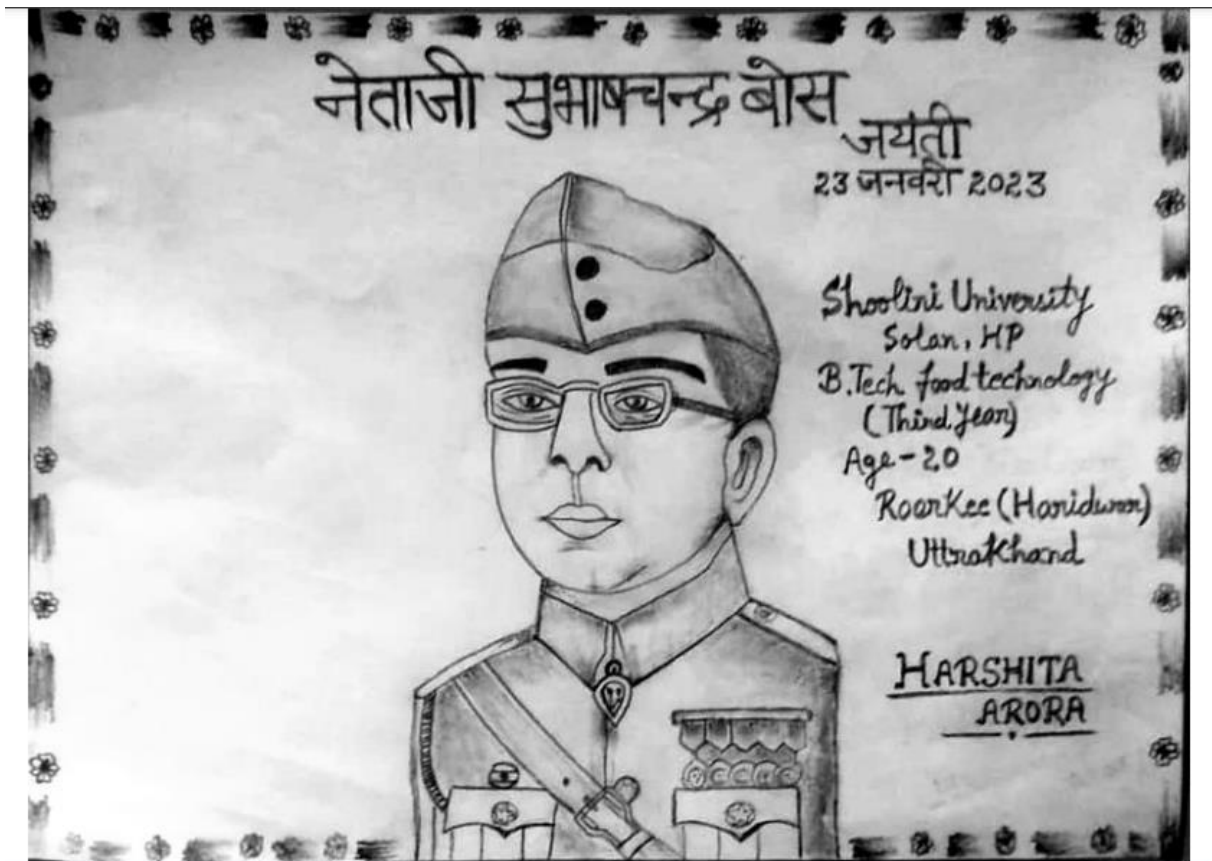 नेताजी सुभाषचन्द्र बोस
जयंती
23 जनवरी 2023
Shoolini University
Solan, HP
B.Tech food technology
(Third Year)
Age-20
Roorkee (Haridwar)
Uttrakhand
HARSHITA
ARORA